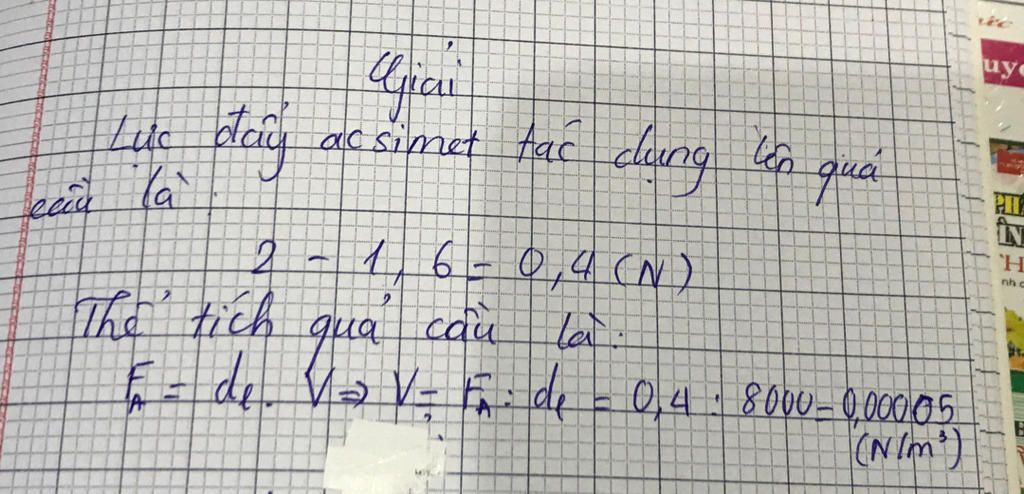 Giải
Lực đẩy acsimet tác dụng lên quả
cầu là:
2 - 1,6 = 0,4 (N)
Thể tích quả cầu là:
FA = dl. V => V = FA : dl = 0,4 : 8000 = 0,00005
(N/m³)
uye
PH
ÂN